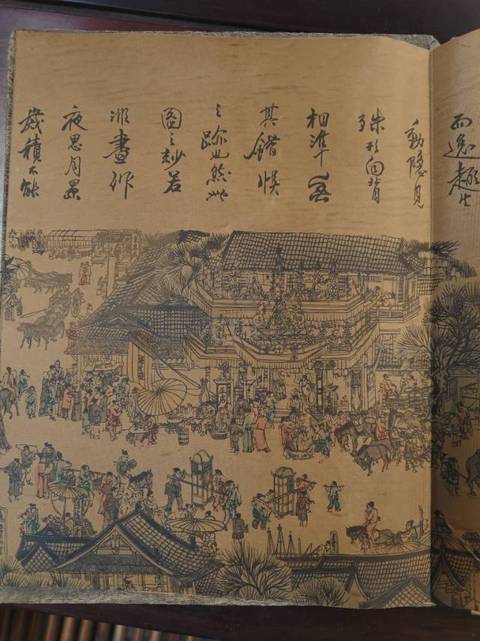 而逸趣生
動隱見
殊形向背
相準無
其錯悞
之跡也然此
圖之妙若
非晝作
夜思月累
歲積不能